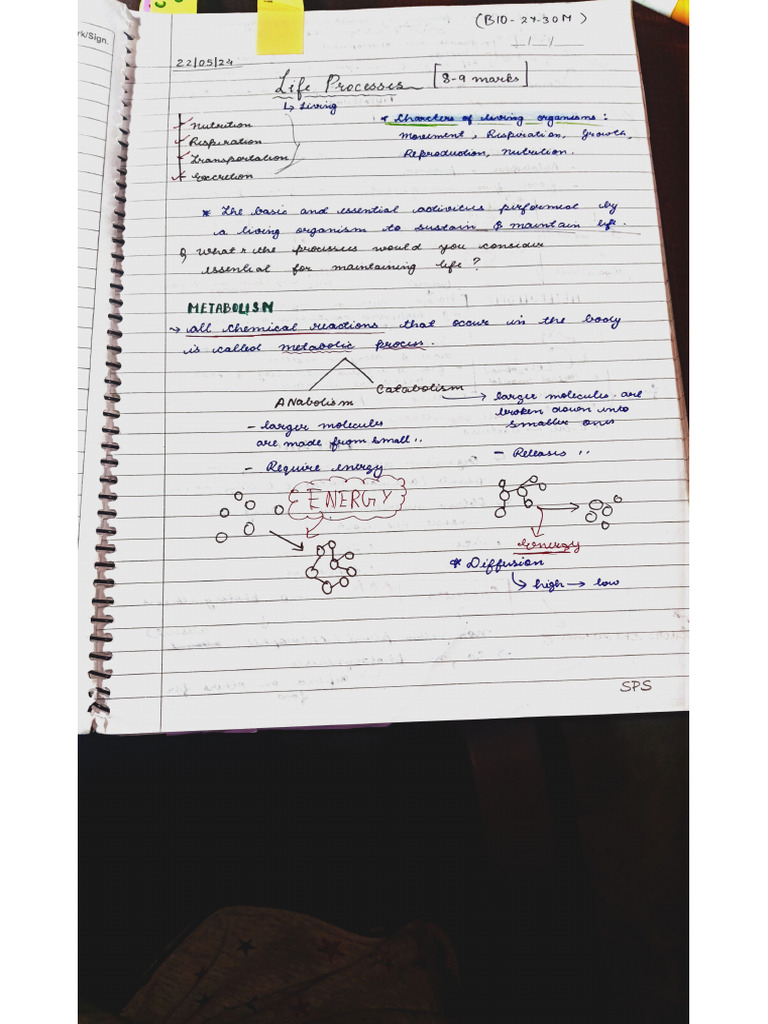 rk/Sign.
(BIO - 27-30M)
__/__/____
22/05/24
Life Processes [8-9 marks]
↳ Living
Nutrition
Respiration
Transportation
Excretion
* Charcters of living organisms :
Movement, Respiration, Growth,
Reproduction, Nutrition.
* The basic and essential activities performed by
a living organism to sustain & maintain life.
Q What r the processes would you consider
essential for maintaining life?
METABOLISM
→ all chemical reactions that occur in the body
is called metabolic process.
ANabolism
- larger molecules
are made from small..
- Require energy
ENERGY
Catabolism → larger molecules are
broken down into
smaller ones
- Releases ,,
Energy
* Diffusion
↳ high → low
SPS